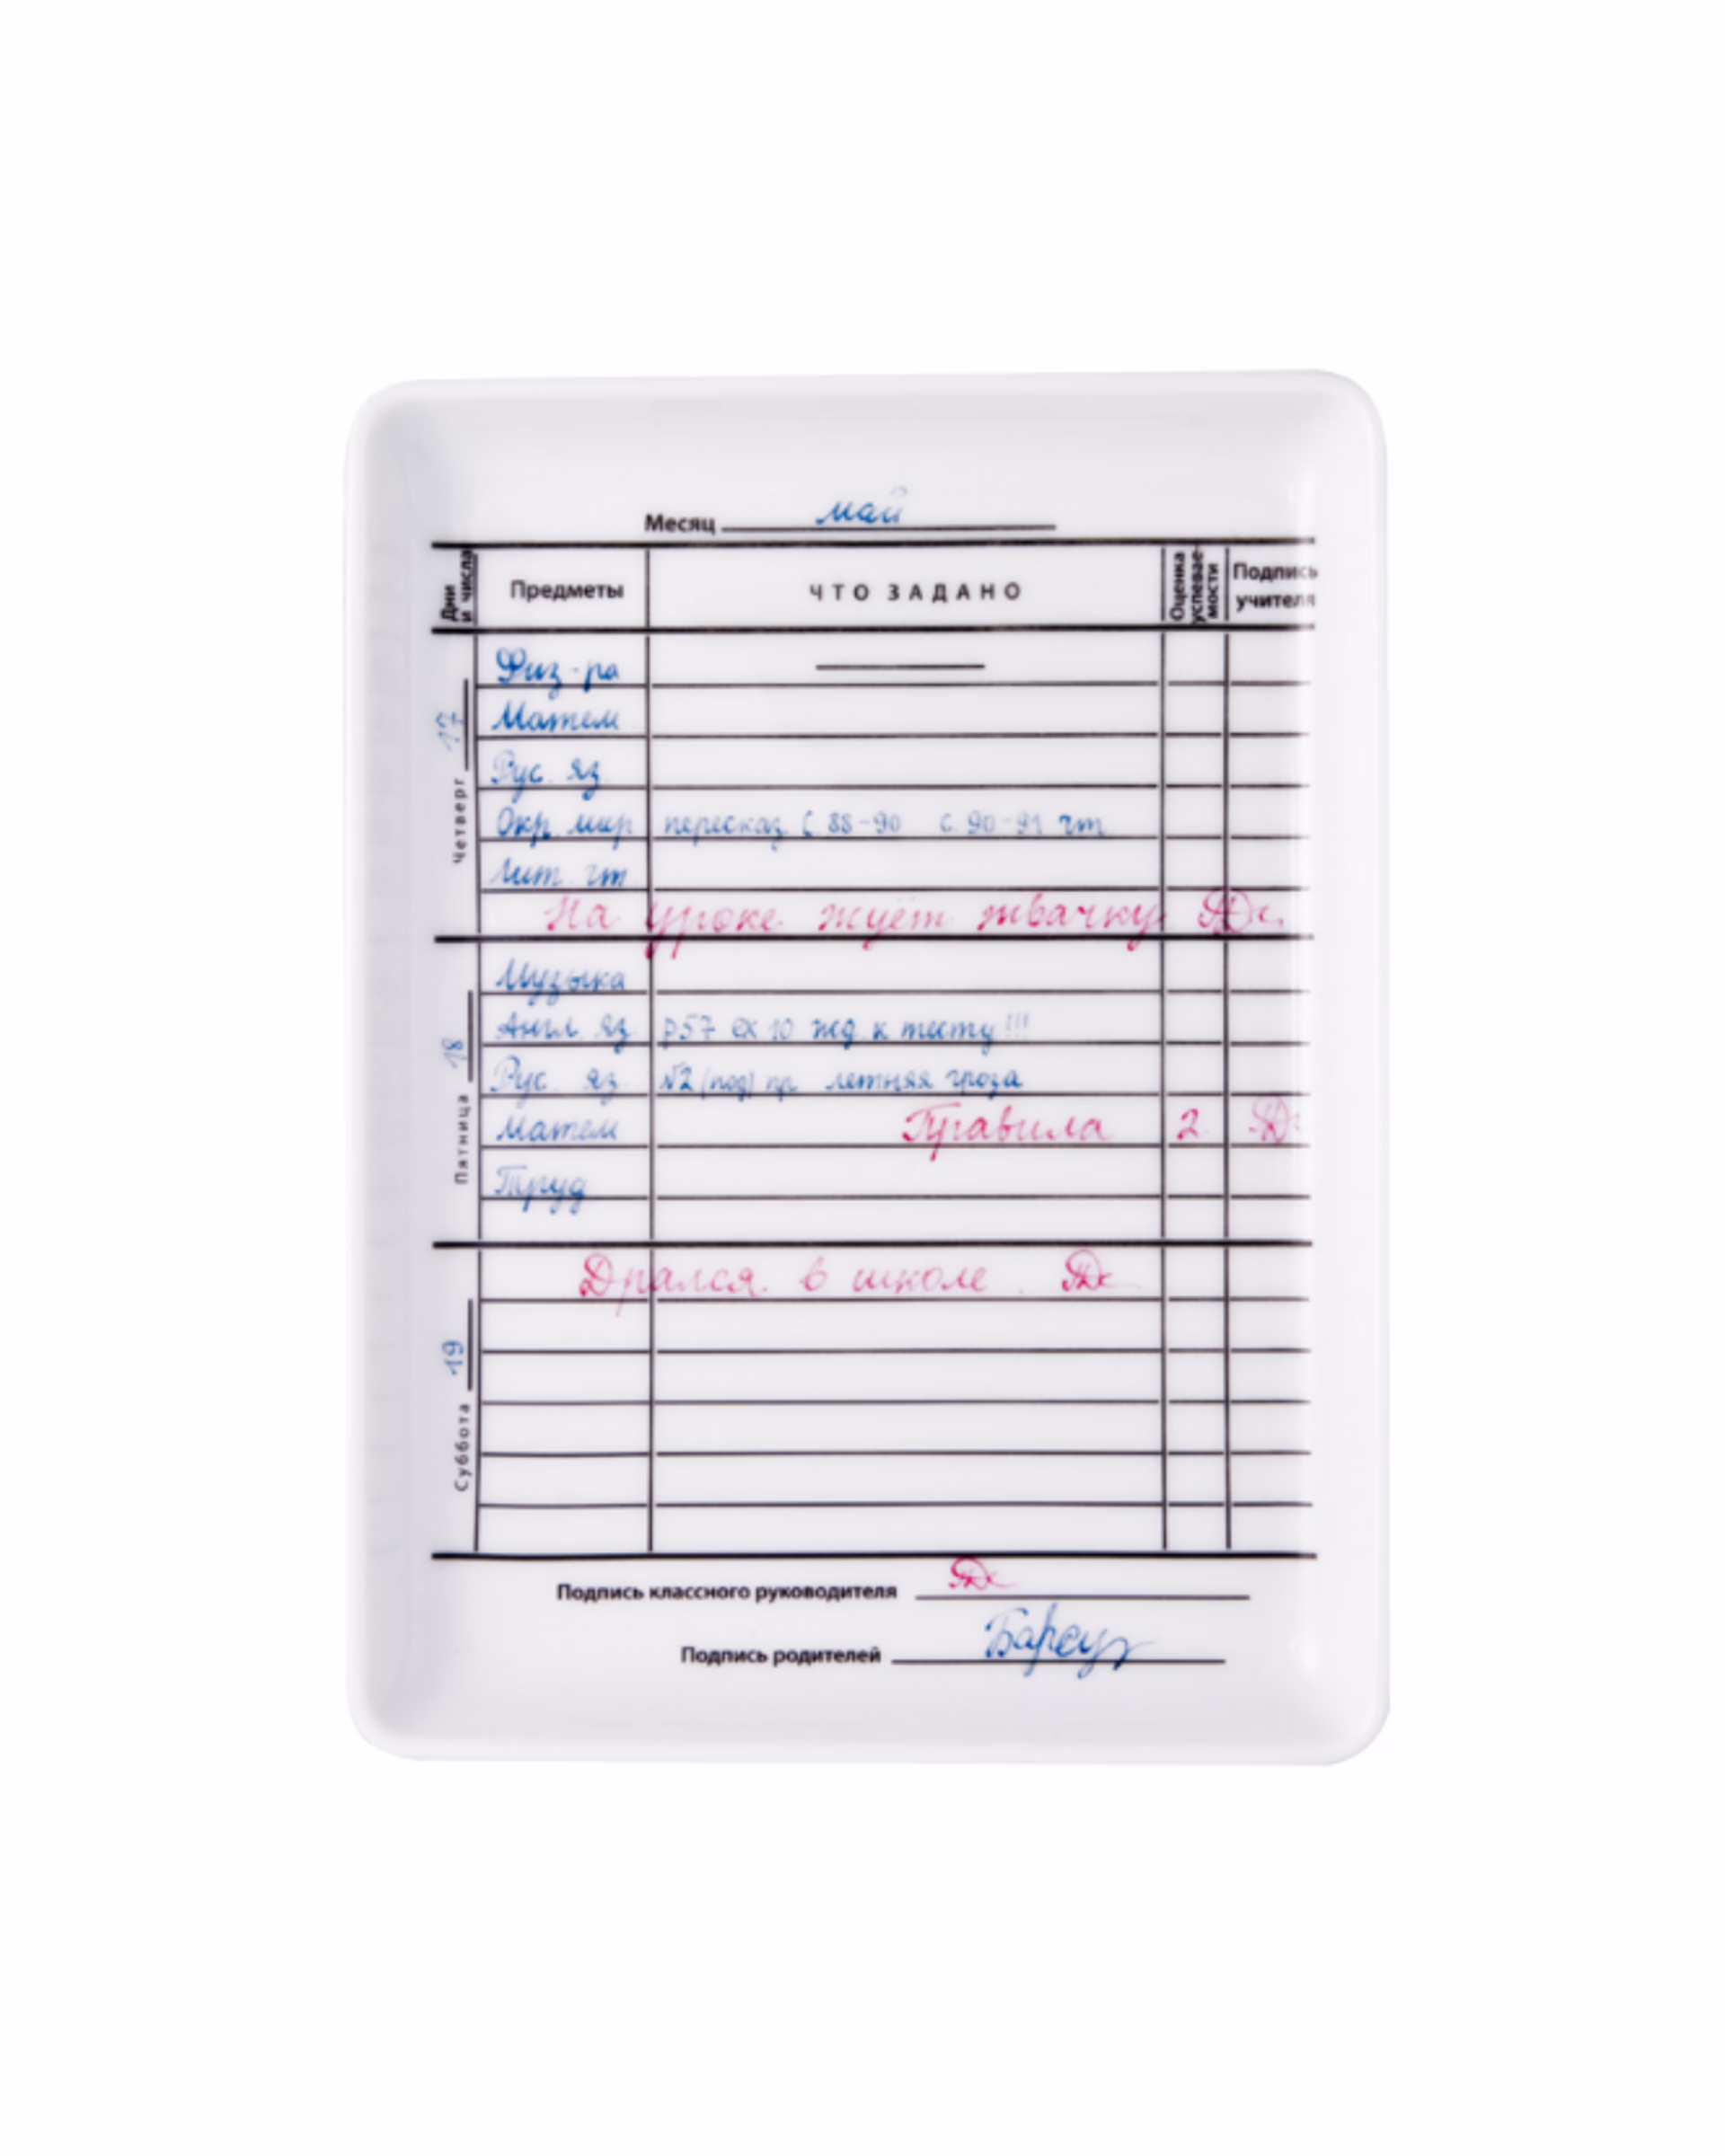 Месяц май
Дни и числа Предметы ЧТО ЗАДАНО Оценка успевае-мости Подпись учителя
Четверг 17
Физ-ра
Матем
Рус. яз.
Окр. мир пересказ С 88-90 с. 90-91 чт
Лит. чт.
На уроке жуёт жвачку
Пятница 18
Музыка
Англ. яз. р57 ex 10 к тесту!!!
Рус. яз. №2 (под) пр летняя гроза
Матем Правила 2
Труд
Суббота 19
Дрался в школе.
Подпись классного руководителя
Подпись родителей